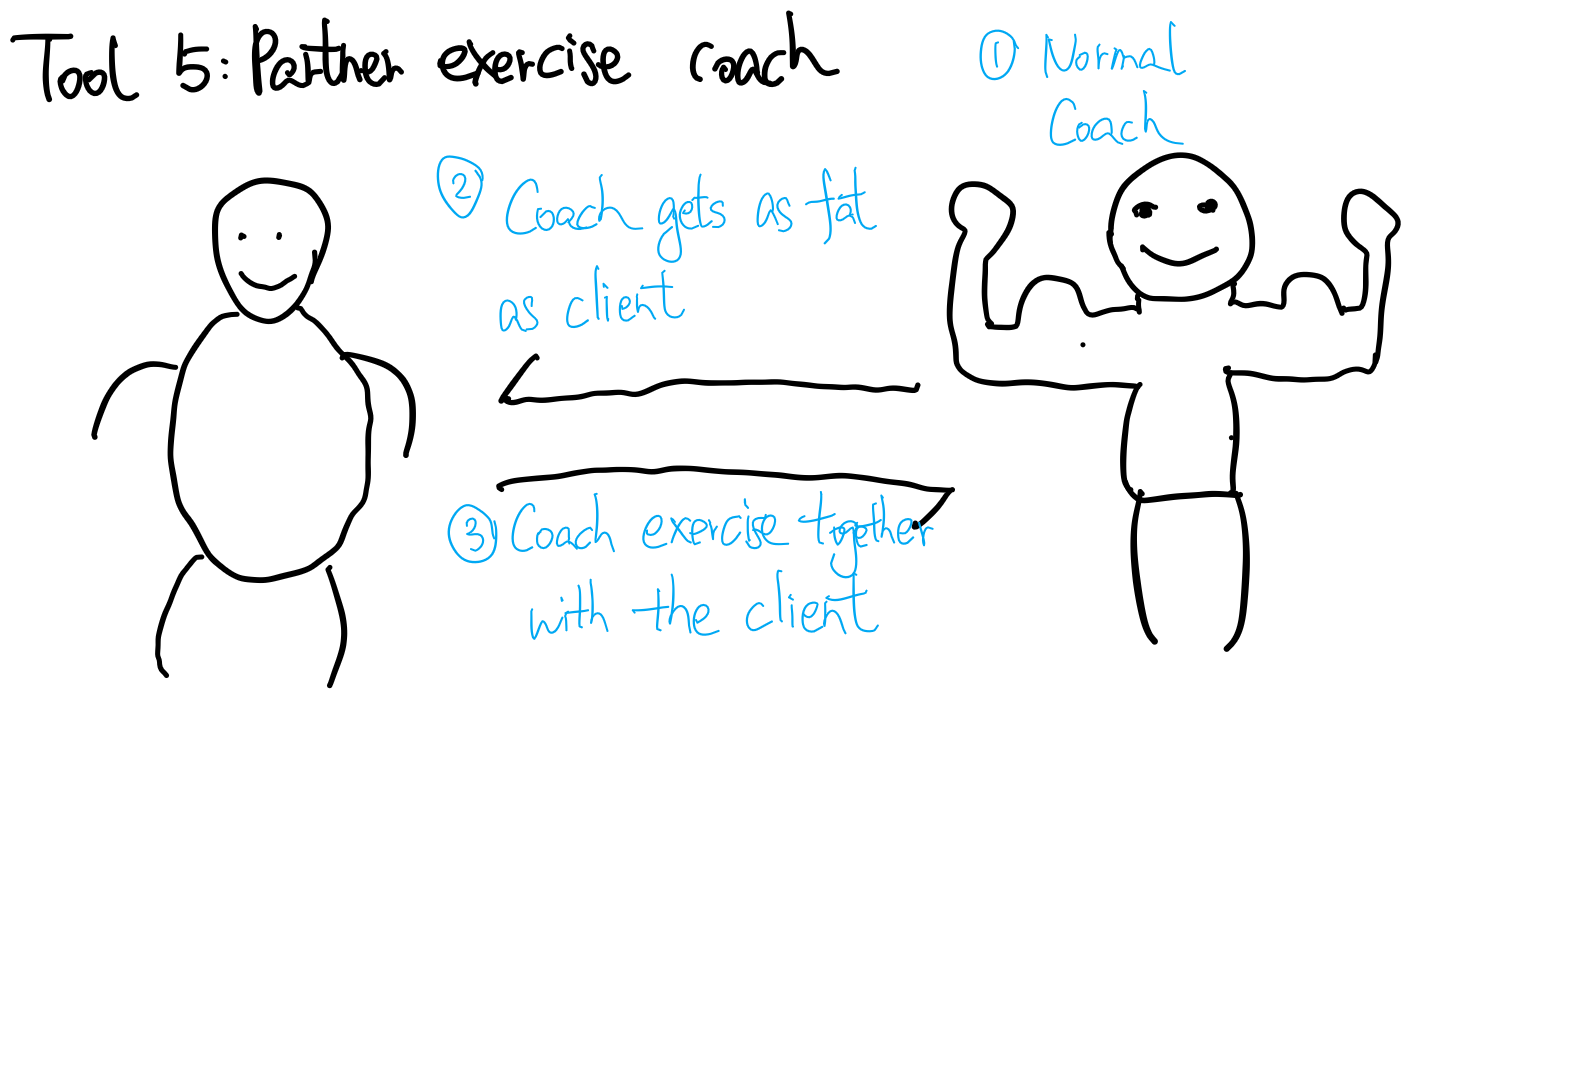 Tool 5: Partner exercise coach
① Normal
Coach
② Coach gets as fat
as client
③ Coach exercise together
with the client